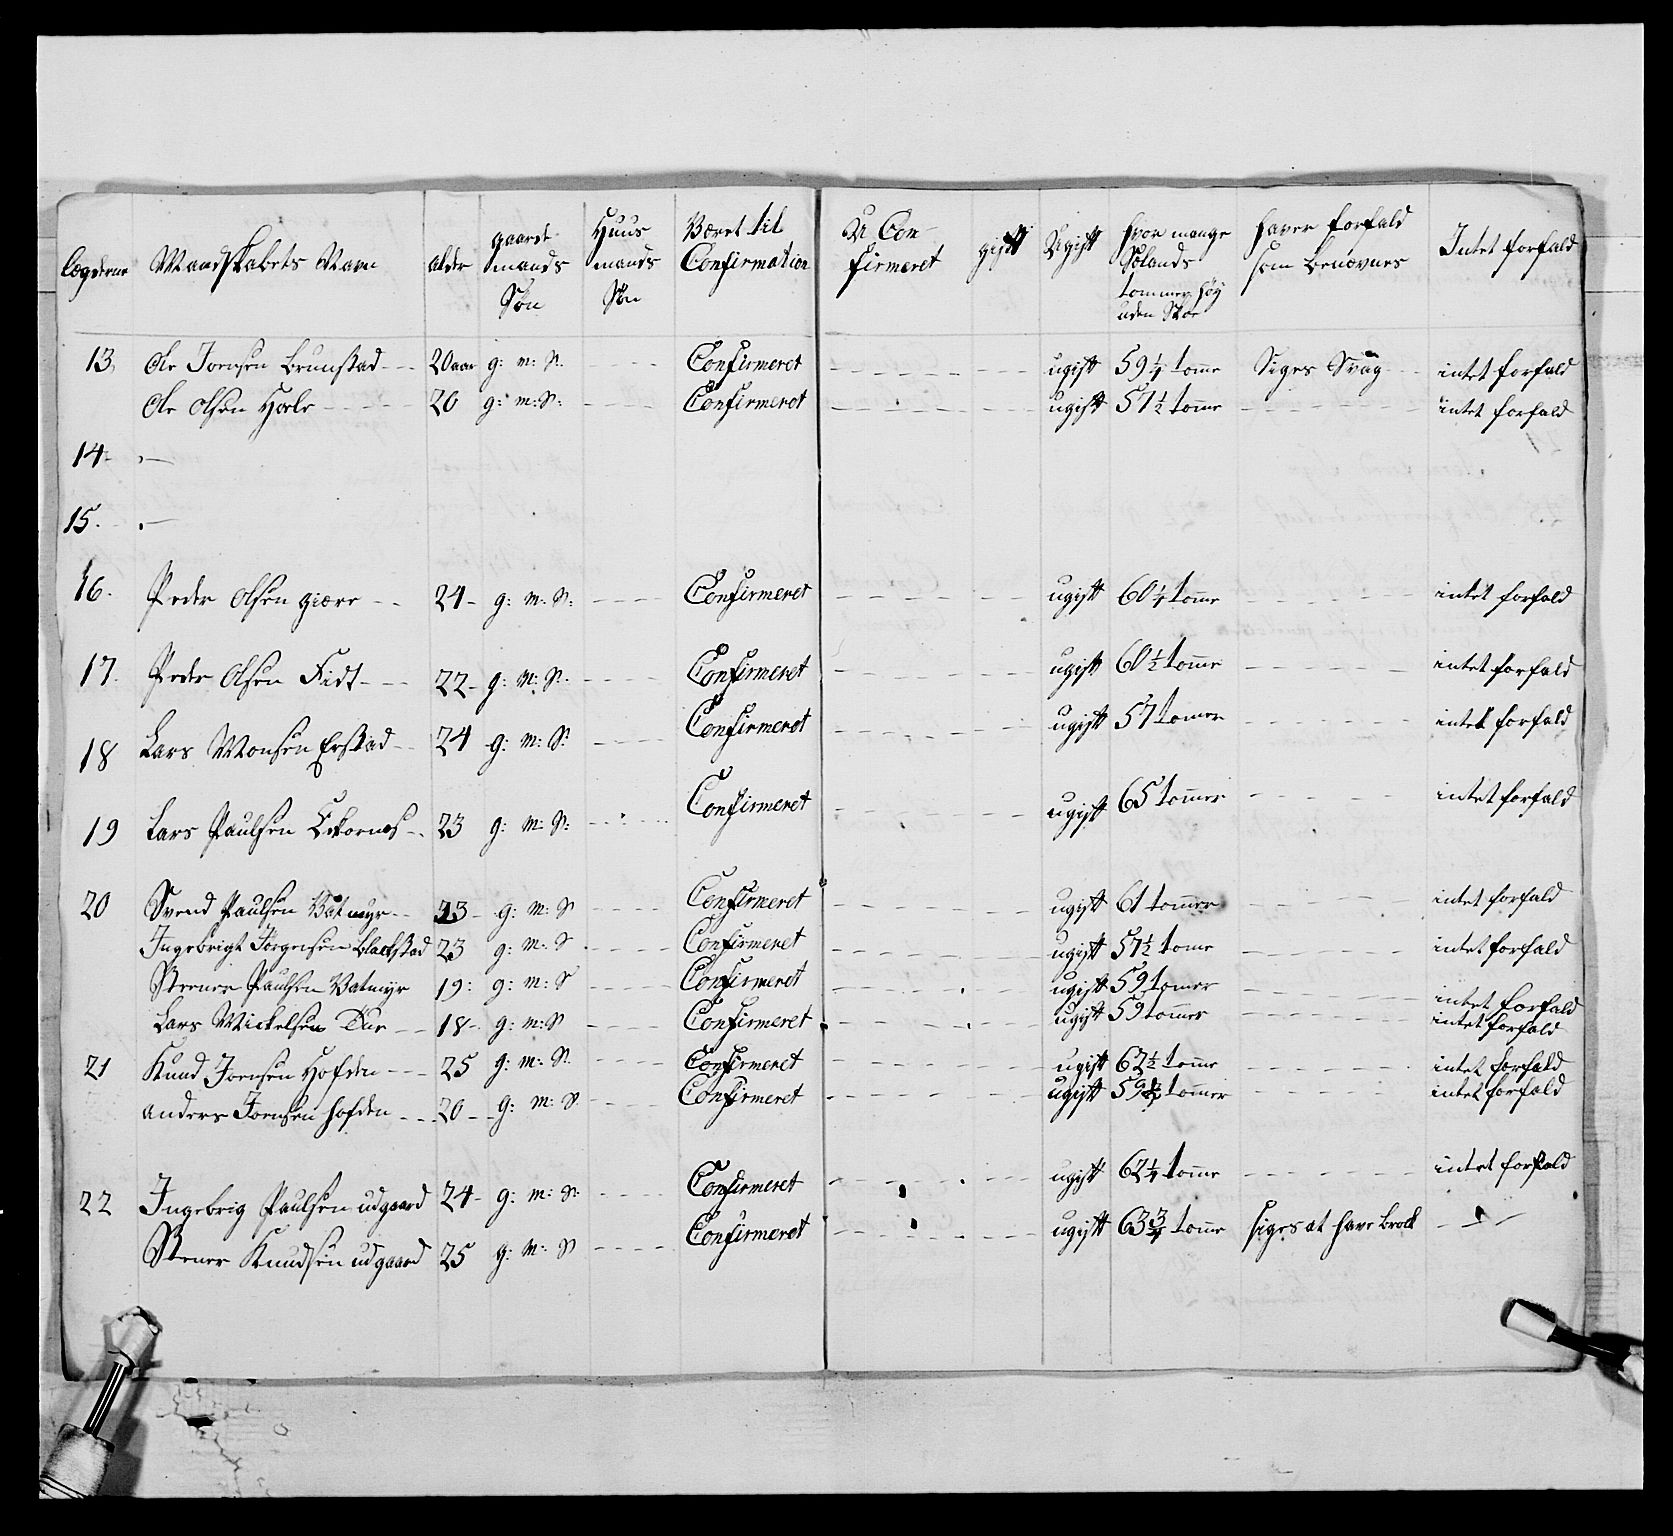 Lægderne Mandskabets Navn alder gaardmands Søn Huusmands Søn Været til Confirmation U Confirmeret gift Ugift hvor mange Sølands tommer høy uden Skoe haver forfald som benævnes Intet forfald
13, Ole Joensen Brunstad --- 20 aar g: m: S. --- Confirmeret --- ugift 59 1/4 tomme Siges Svag intet forfald
Ole Olsen Hole --- 20 g: m: S: --- Confirmeret --- ugift 57 1/2 tomme --- intet forfald
14: -
15. -
16. Peder Olsen giære -- 24 - g: m: S: --- Confirmeret --- ugift 60 1/4 tomme --- intet forfald
17. Peder Olsen Fidt --- 22 - g: m: S. --- Confirmeret --- ugift 60 1/2 tomme --- intet forfald
18 Lars Monsen Erstad -- 24 g: m: S: --- Confirmeret --- ugift 57 tomer --- intet forfald
19 Lars Paulsen Eckornes -- 23 g: m: S: --- Confirmeret --- ugift 65 tommer --- intet forfald
20 Svend Paulsen Vatmyr -- 23 - g: m: S --- Confirmeret --- ugift 61 tommer --- intet forfald
Ingebrigt Jørgensen Blackstad 23 g: m: S --- Confirmeret --- ugift 57 1/2 tome --- intet forfald
Steener Paulsen Vatmyr 19: g: m: S --- Confirmeret --- ugift 59 tomer --- intet forfald
Lars Mickelsen Due -- 18 - g: m: S --- Confirmeret --- ugift 59 tommer --- intet forfald
21 Knud Joensen Hofden --- 25 g: m: S. --- Confirmeret --- ugift 62 1/2 tomme --- intet forfald
anders Joensen hofden --- 20 -- g: m: S --- Confirmeret --- ugift 59 tommer --- intet forfald
22 Ingebrig Paulsen udgaard 24 - g: m: S. --- Confirmeret --- ugift 62 1/4 tomme --- intet forfald
Stener Knudsen udgaard 25 g: m: S --- Confirmeret --- ugift 63 3/4 tomme siges at have brock ---